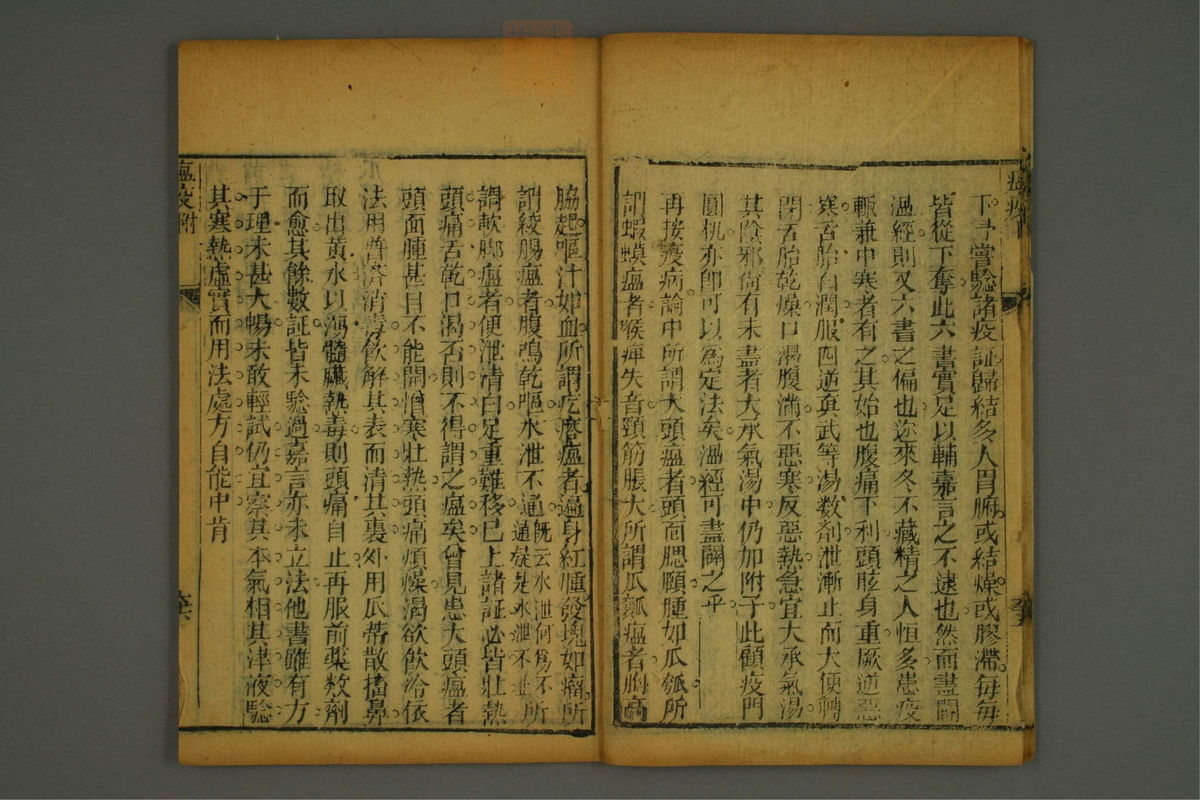 下予嘗驗諸疫証歸結多人胃腑或結燥或膠滯每每
皆從下奪此六書實足以輔嘉言之不逮也然而盡闢
溫經則又六書之偏也迩來冬不藏精之人恒多患疫
輒兼中寒者有之其始也腹痛下利頭眩身重厥逆惡
寒舌胎白潤服四逆真武等湯数劑泄漸止而大便轉
閉舌胎乾燥口渴腹滿不惡寒反惡熱急宜大承氣湯
其陰邪尚有未盡者大承氣湯中仍加附子此顧疫門
圓机亦卽可以為定法矣溫經可盡闢之乎
再按疫病論中所謂大頭瘟者頭面腮頤腫如瓜瓠所
謂蝦蟆瘟者喉痺失音頸筋脹大所謂瓜瓤瘟者胸高
脇起嘔汁如血所謂疙瘩瘟者遍身紅腫發塊如瘤所
謂絞腸瘟者腹鳴乾嘔水泄不通旣云水泄何為不通疑是水泄不止所
謂軟脚瘟者便泄清白足重難移已上諸証必皆壯熱
頭痛舌乾口渴否則不得謂之瘟矣曾見患大頭瘟者
頭面腫甚目不能開憎寒壯熱頭痛煩燥渴欲飲冷依
法用普濟消毒飲解其表而清其裏外用瓜蒂散搐鼻
取出黃水以瀉髓臟熱毒則頭痛自止再服前藥数劑
而愈其餘數証皆未驗過嘉言亦未立法他書雖有方
于理未甚大暢未敢輕試仍宜察其本氣相其津液驗
其寒熱虛實而用法處方自能中肯
瘟疫 附